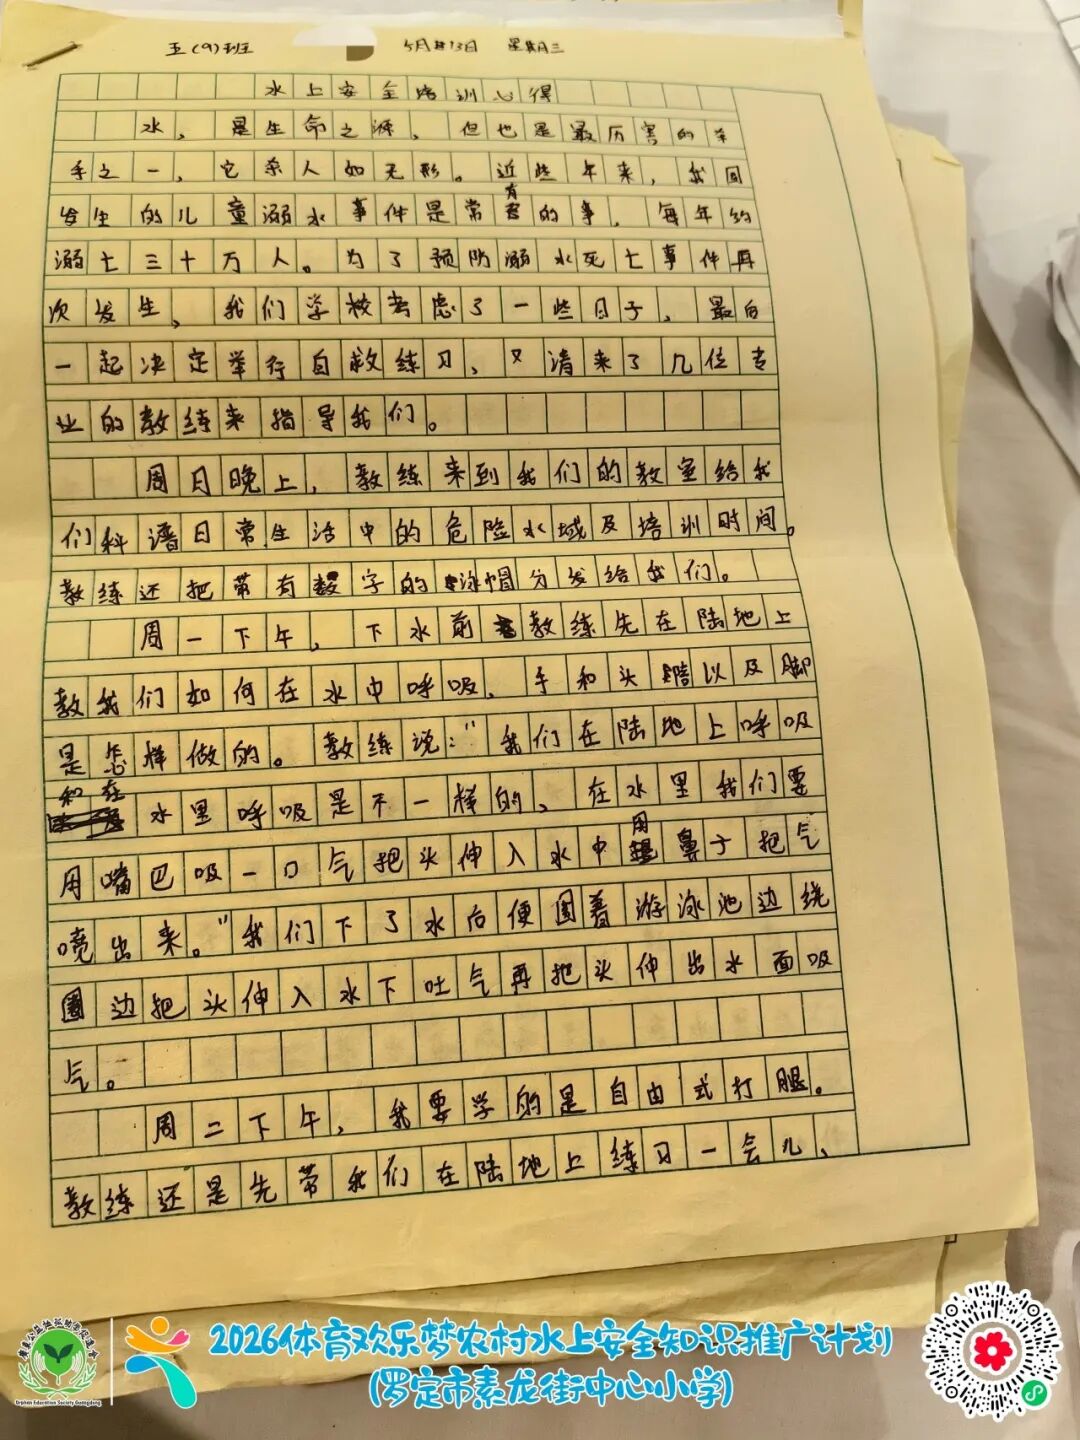 五(9)班 5月13日 星期三
水上安全培训心得
水，是生命之源，但也是最厉害的杀
手之一，它杀人如无形。近些年来，我国
发生的儿童溺水事件是常有的事，每年约
溺亡三十万人。为了预防溺水死亡事件再
次发生，我们学校考虑了一些日子，最后
一起决定举行自救练习，又请来了几位专
业的教练来指导我们。
周日晚上，教练来到我们的教室给我
们科谱日常生活中的危险水域及培训时间。
教练还把带有数字的泳帽分发给我们。
周一下午，下水前教练先在陆地上
教我们如何在水中呼吸、手和头以及脚
是怎样做的。教练说："我们在陆地上呼吸
和在水里呼吸是不一样的，在水里我们要
用嘴巴吸一口气把头伸入水中用鼻子把气
喷出来。"我们下了水后便围着游泳池边绕
圈边把头伸入水下吐气再把头伸出水面吸
气。
周二下午，我要学的是自由式打腿。
教练还是先带我们在陆地上练习一会儿，
2026体育欢乐梦农村水上安全知识推广计划
(罗定市素龙街中心小学)
Orphan Education Society Guangdong